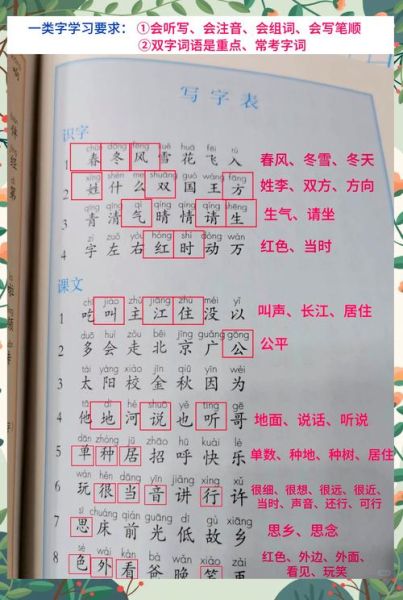 一类字学习要求： ①会听写、会注音、会组词、会写笔顺
②双字词语是重点、常考字词
写字表
识字
chūn dōng fēng xuě huā fēi rù
1 春 冬 风 雪 花 飞 入 春风、冬雪、冬天
xìng shén me shuāng guó wáng fāng
2 姓 什 么 双 国 王 方 姓李、双方、方向
qīng qīng qì qíng qíng qǐng shēng
3 青 清 气 晴 情 请 生 生气、请坐
zì zuǒ yòu hóng shí dòng wàn
4 字 左 右 红 时 动 万 红色、当时
课文
chī jiào zhǔ jiāng zhù méi yǐ
1 吃 叫 主 江 住 没 以 叫声、长江、居住
duō huì zǒu běi jīng guǎng gōng
2 多 会 走 北 京 广 公 公平
tài yáng xiào jīn qiū yīn wèi
3 太 阳 校 金 秋 因 为
tā dì hé shuō yě tīng gē
4 他 地 河 说 也 听 哥 地面、说话、听说
dān zhòng jū zhāo hū kuài lè
5 单 种 居 招 呼 快 乐 单数、种地、种树、居住
wán hěn dāng yīn jiǎng xíng xǔ
6 玩 很 当 音 讲 行 许 很细、很想、很远、很近、
当时、声音、还行、可行
sī chuáng qián guāng dī gù xiāng
7 思 床 前 光 低 故 乡 思乡、思念
sè wài kàn bà wǎn xiào zài
8 色 外 看 爸 晚 笑 再 红色、外边、外面、
看见、玩笑